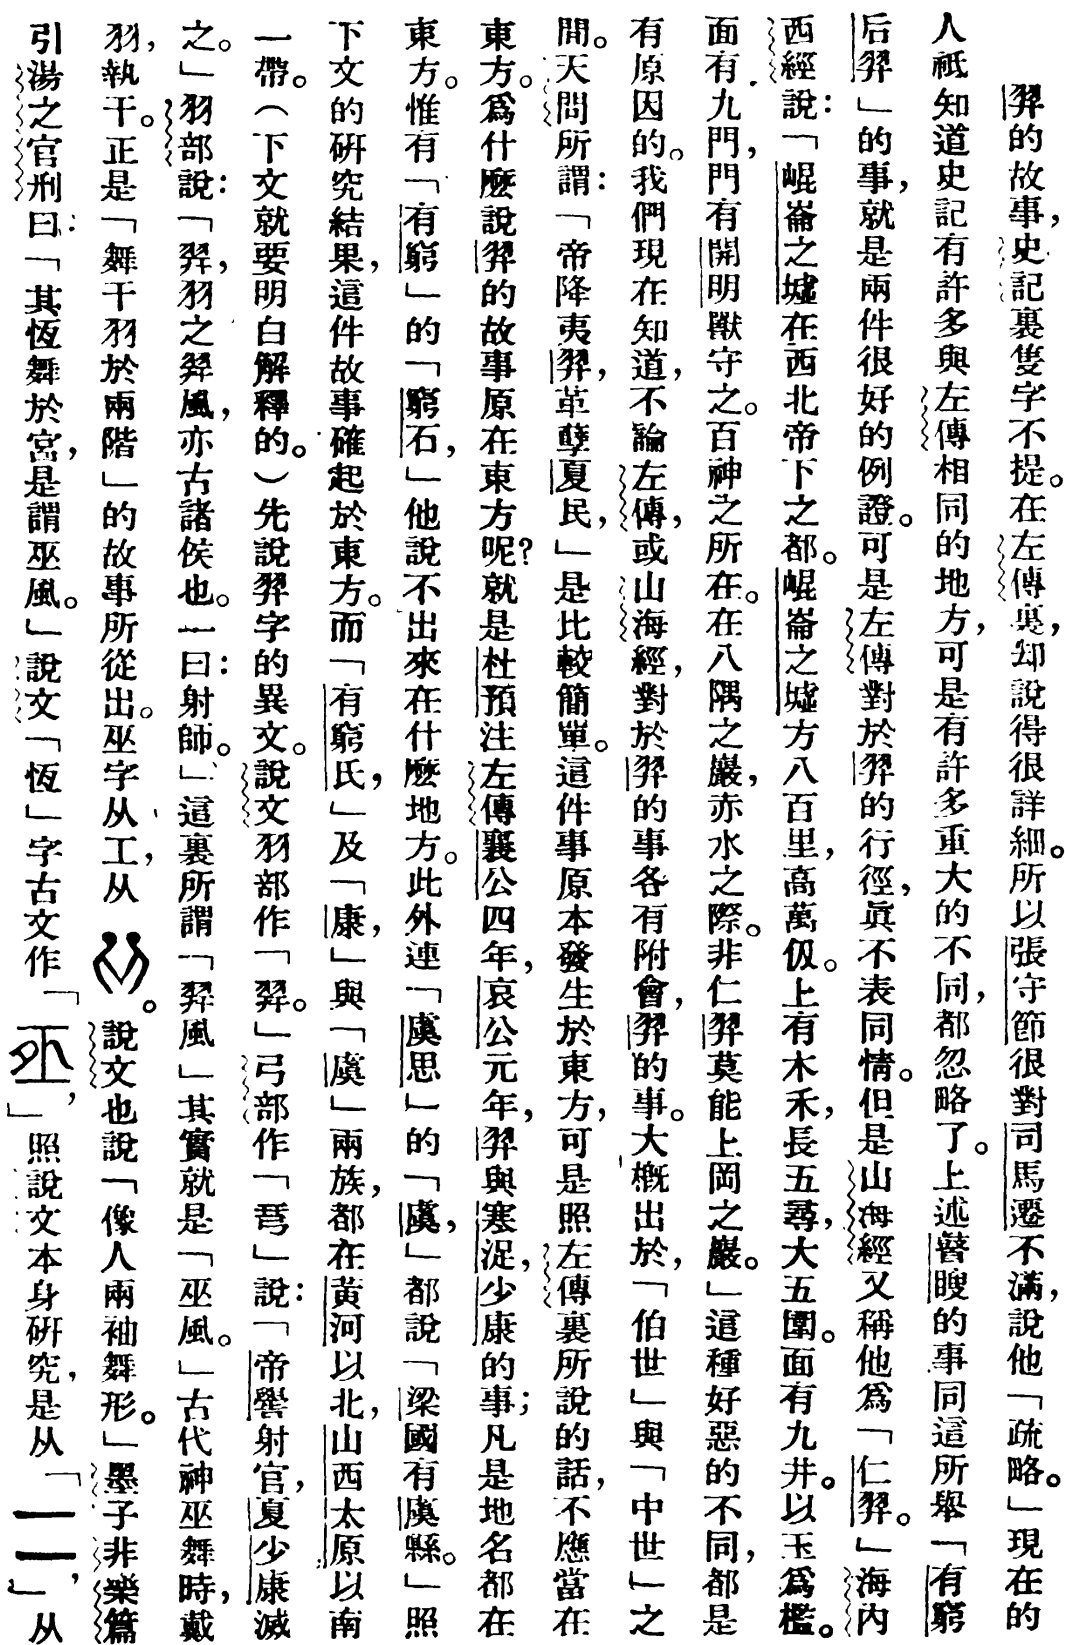 羿的故事，史記裏隻字不提。在左傳裏，却說得很詳細。所以張守節很對司馬遷不滿，說他「疏略。」現在的
人祗知道史記有許多與左傳相同的地方，可是有許多重大的不同，都忽略了。上述瞽瞍的事同這所舉「有窮
后羿」的事，就是兩件很好的例證。可是左傳對於羿的行徑，眞不表同情。但是山海經又稱他爲「仁羿。」海內
西經說：「崐崙之墟在西北帝下之都。崐崙之墟方八百里，高萬仭。上有木禾，長五尋，大五圍。面有九井。以玉爲檻。
面有九門，門有開明獸守之。百神之所在。在八隅之巖，赤水之際。非仁羿莫能上岡之巖。」這種好惡的不同，都是
有原因的。我們現在知道，不論左傳，或山海經，對於羿的事各有附會，羿的事。大概出於，「伯世」與「中世」之
間。天問所謂：「帝降夷羿，革孽夏民，」是比較簡單。這件事原本發生於東方，可是照左傳裏所說的話，不應當在
東方。爲什麽說羿的故事原在東方呢？就是杜預注左傳襄公四年，哀公元年，羿與寒浞，少康的事；凡是地名都在
東方。惟有「有窮」的「窮石，」他說不出來在什麽地方。此外連「虞思」的「虞，」都說「梁國有虞縣。」照
下文的研究結果，這件故事確起於東方。而「有窮氏，」及「康，」與「虞」兩族，都在黃河以北，山西太原以南
一帶。（下文就要明白解釋的。）先說羿字的異文。說文羽部作「羿。」弓部作「䓊」說：「帝嚳射官，夏少康滅
之。」羽部說：「羿，羽之羿風，亦古諸侯也。一曰：射師。」這裏所謂「羿風」其實就是「巫風。」古代神巫舞時，戴
羽，執干。正是「舞干羽於兩階」的故事所從出。巫字从工，从。說文也說「像人兩袖舞形。」墨子非樂篇
引湯之官刑曰：「其恆舞於宮，是謂巫風。」說文「恆」字古文作「𠄨，」照說文本身研究，是从「二，」从